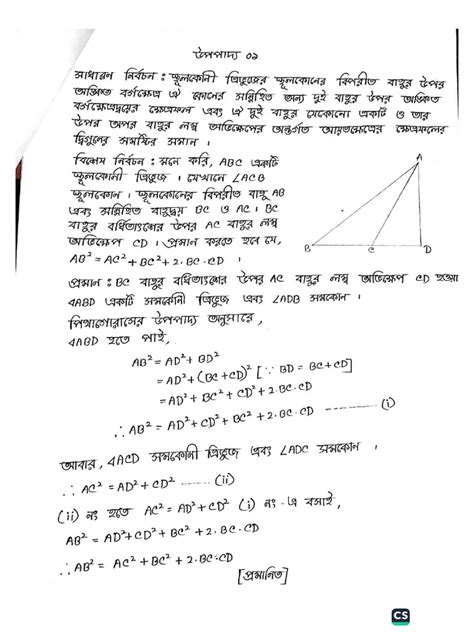 উপপাদ্য ০১
সাধারন নির্বচন : স্থূলকোনী ত্রিভুজের স্থূলকোনের বিপরীত বাহুর উপর
অঙ্কিত বর্গক্ষেত্র ঐ কোনের সন্নিহিত অন্য দুই বাহুর উপর অঙ্কিত
বর্গক্ষেত্রদ্বয়ের ক্ষেত্রফল এবং ঐ দুই বাহুর যেকোনো একটি ও তার
উপর অপর বাহুর লম্ব অভিক্ষেপের অন্তর্গত আয়তক্ষেত্রের ক্ষেত্রফলের
দ্বিগুনের সমষ্টির সমান ।
বিশেষ নির্বচন : মনে করি, ABC একটি
স্থূলকোনী ত্রিভুজ । যেখানে ∠ACB
স্থূলকোন । স্থূলকোনের বিপরীত বাহু AB
এবং সন্নিহিত বাহুদ্বয় BC ও AC । BC
বাহুর বর্ধিতাংশের উপর AC বাহুর লম্ব
অভিক্ষেপ CD । প্রমান করতে হবে যে,
AB² = AC² + BC² + 2·BC·CD
A
B C D
প্রমান : BC বাহুর বর্ধিতাংশের উপর AC বাহুর লম্ব অভিক্ষেপ CD হওয়ায়
∢ABD একটি সমকোনী ত্রিভুজ এবং ∠ADB সমকোন ।
পিথাগোরাসের উপপাদ্য অনুসারে,
∢ABD হতে পাই,
AB² = AD² + BD²
= AD² + (BC + CD)² [∵ BD = BC + CD]
= AD² + BC² + CD² + 2·BC·CD
∴ AB² = AD² + CD² + BC² + 2·BC·CD ------ (i)
আবার, ∢ACD সমকোনী ত্রিভুজ এবং ∠ADC সমকোন ।
∴ AC² = AD² + CD² ------ (ii)
(ii) নং হতে AC² = AD² + CD² (i) নং -এ বসাই,
AB² = AD² + CD² + BC² + 2·BC·CD
∴ AB² = AC² + BC² + 2·BC·CD
[প্রমানিত]
CS